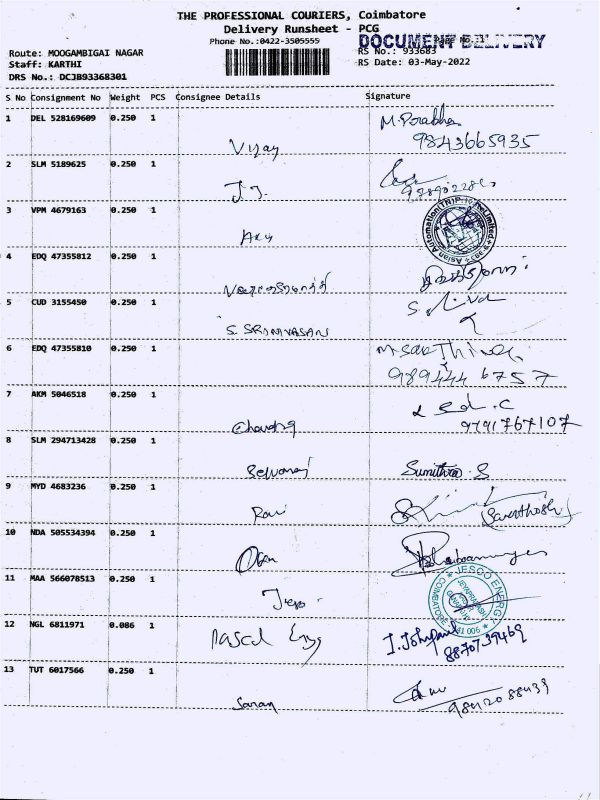 THE PROFESSIONAL COURIERS, Coimbatore
Delivery Runsheet - PCG
DOCUMENT DELIVERY
Phone No.:0422-3505555
Route: MOOGAMBIGAI NAGAR
RS No.: 933683
Staff: KARTHI
RS Date: 03-May-2022
DRS No.: DCJB93368301
S No Consignment No Weight PCS Consignee Details Signature
1 DEL 528169609 0.250 1 Vijay M. Prabhu
9843665935
2 SLM 5189625 0.250 1 J.J.
3 VPM 4679163 0.250 1
4 EDQ 47355812 0.250 1
5 CUD 3155450 0.250 1 S. SRINIVASAN S. Siva
6 EDQ 47355810 0.250 1
9894446757
7 AKM 5046518 0.250 1
9791767107
8 SLM 294713428 0.250 1 Selvaraj Sumithra S
9 MYD 4683236 0.250 1 Ravi (Santhosh)
10 NDA 505534394 0.250 1
11 MAA 566078513 0.250 1 JESCO ENERGY
COIMBATORE
12 NGL 6811971 0.086 1 Engg
8870739469
13 TUT 6017566 0.250 1 Saran
9842088433